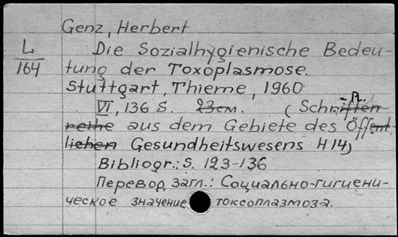 Genz, Herbert
L
164
Die Sozialhygienische Bedeu-
tung der Toxoplasmose.
Stuttgart, Thieme, 1960
VI, 136 S. 23см. (Schriften-R.
reihe aus dem Gebiete des Öffent-
lichen Gesundheitswesens H 14)
Bibliogr.: S. 123-136
Перевод загл.: Социально-гигиени-
ческое значение токсоплазмоза.